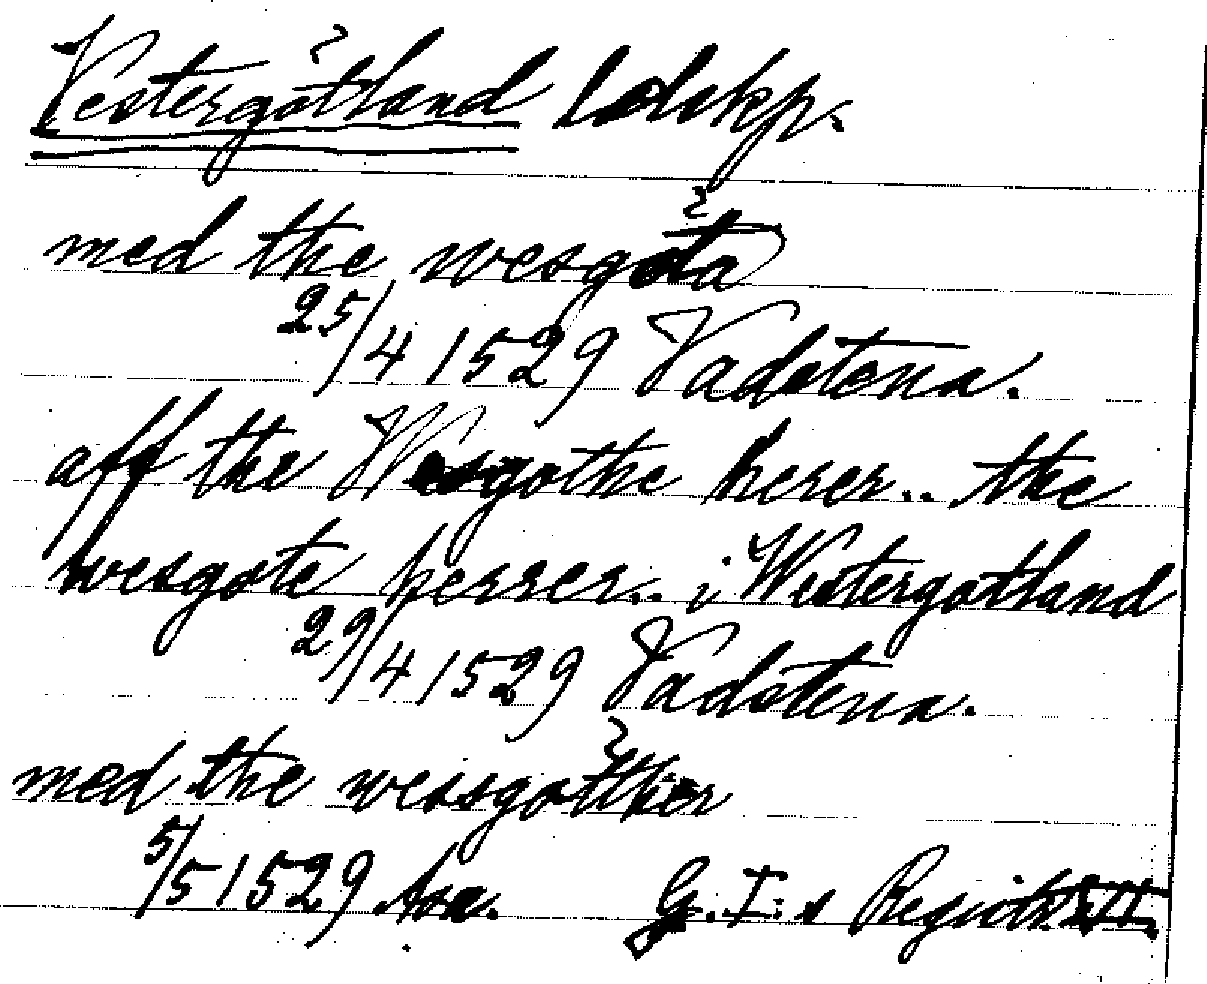 Vestergötland ldskp.
med the wesgöta
25/4 1529 Vadstena.
aff the Wesgothe herer.. the
wesgote herrer.. i Westergotland
29/4 1529 Vadstena.
med the wessgötther
5/5 1529 Asa. G. I:s Registr.